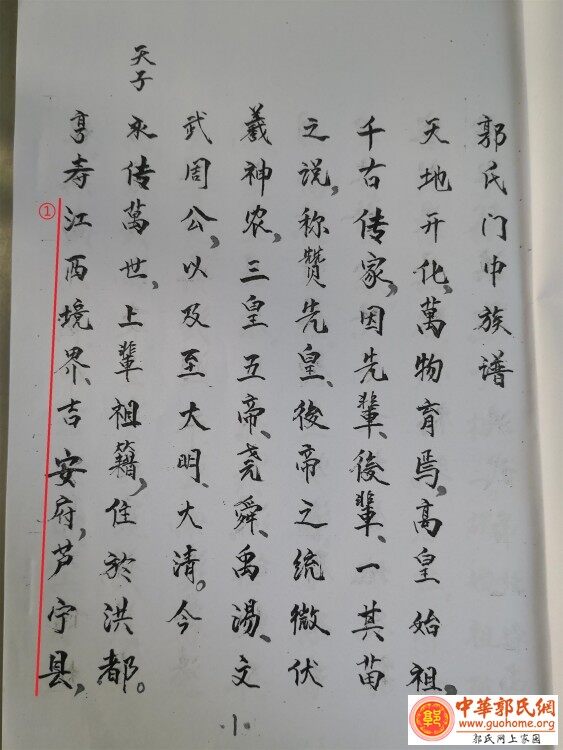 郭氏门中族谱
天地开化，萬物育焉，高皇始祖，
千古传家，因先輩、後輩、一其苗
之说，称赞先皇、後帝之统微伏
羲神农，三皇五帝、尧舜、禹湯、文
武周公，以及至大明、大清。今
天子
永传萬世，上輩祖籍，住於洪都。
享寿江西境界、吉安府，芦宁县，
①
-1-
郭
中華郭氏網
www.guohome.org
郭氏网上家园